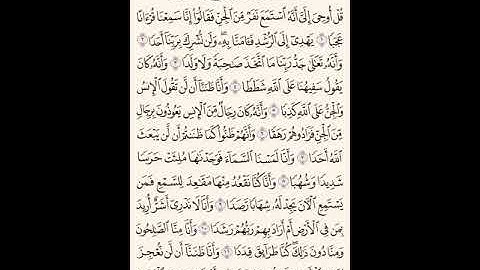 قُلْ أُوحِيَ إِلَيَّ أَنَّهُ ٱسْتَمَعَ نَفَرٌ مِّنَ ٱلْجِنِّ فَقَالُوٓا۟ إِنَّا سَمِعْنَا قُرْءَانًا
عَجَبًا ١ يَهْدِىٓ إِلَى ٱلرُّشْدِ فَـَٔامَنَّا بِهِۦ وَلَن نُّشْرِكَ بِرَبِّنَآ أَحَدًا ٢
وَأَنَّهُۥ تَعَـٰلَىٰ جَدُّ رَبِّنَا مَا ٱتَّخَذَ صَـٰحِبَةً وَلَا وَلَدًا ٣ وَأَنَّهُۥ كَانَ
يَقُولُ سَفِيهُنَا عَلَى ٱللَّهِ شَطَطًا ٤ وَأَنَّا ظَنَنَّآ أَن لَّن تَقُولَ ٱلْإِنسُ
وَٱلْجِنُّ عَلَى ٱللَّهِ كَذِبًا ٥ وَأَنَّهُۥ كَانَ رِجَالٌ مِّنَ ٱلْإِنسِ يَعُوذُونَ بِرِجَالٍ
مِّنَ ٱلْجِنِّ فَزَادُوهُمْ رَهَقًا ٦ وَأَنَّهُمْ ظَنُّوا۟ كَمَا ظَنَنتُمْ أَن لَّن يَبْعَثَ
ٱللَّهُ أَحَدًا ٧ وَأَنَّا لَمَسْنَا ٱلسَّمَآءَ فَوَجَدْنَـٰهَا مُلِئَتْ حَرَسًا
شَدِيدًا وَشُهُبًا ٨ وَأَنَّا كُنَّا نَقْعُدُ مِنْهَا مَقَـٰعِدَ لِلسَّمْعِ فَمَن
يَسْتَمِعِ ٱلْـَٔانَ يَجِدْ لَهُۥ شِهَابًا رَّصَدًا ٩ وَأَنَّا لَا نَدْرِىٓ أَشَرٌّ أُرِيدَ
بِمَن فِى ٱلْأَرْضِ أَمْ أَرَادَ بِهِمْ رَبُّهُمْ رَشَدًا ١٠ وَأَنَّا مِنَّا ٱلصَّـٰلِحُونَ
وَمِنَّا دُونَ ذَٰلِكَ كُنَّا طَرَآئِقَ قِدَدًا ١١ وَأَنَّا ظَنَنَّآ أَن لَّن نُّعْجِزَ